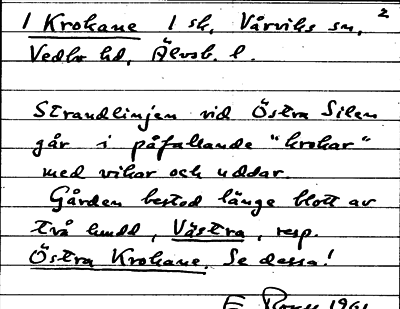 1 Krokane 1 sk, Vårviks sn, 2
Vedbo hd, Älvsb. l.
Strandlinjen vid Östra Silen
går i påfallande "krokar"
med vikar och uddar.
Gården bestod länge blott av
två hmdd, Västra, resp.
Östra Krokane. Se dessa!
E 1961